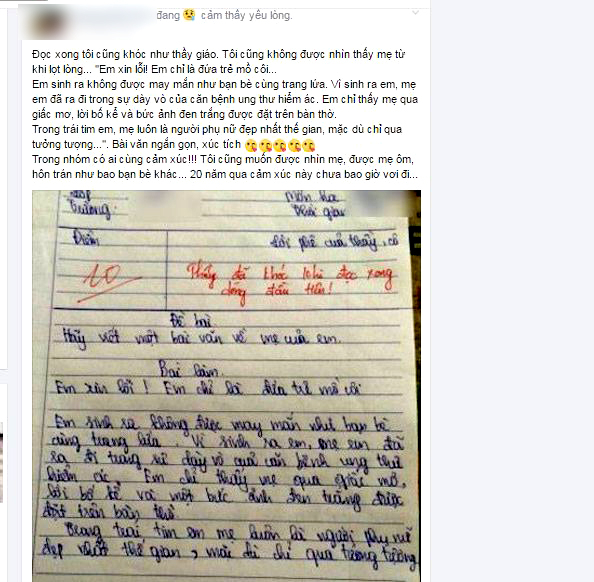 đang cảm thấy yếu lòng.
Đọc xong tôi cũng khóc như thầy giáo. Tôi cũng không được nhìn thấy mẹ từ
khi lọt lòng... "Em xin lỗi! Em chỉ là đứa trẻ mồ côi...
Em sinh ra không được may mắn như bạn bè cùng trang lứa. Vì sinh ra em, mẹ
em đã ra đi trong sự dày vò của căn bệnh ung thư hiểm ác. Em chỉ thấy mẹ qua
giấc mơ, lời bố kể và bức ảnh đen trắng được đặt trên bàn thờ.
Trong trái tim em, mẹ luôn là người phụ nữ đẹp nhất thế gian, mặc dù chỉ qua
tưởng tượng...". Bài văn ngắn gọn, xúc tích
Trong nhóm có ai cùng cảm xúc!!! Tôi cũng muốn được nhìn mẹ, được mẹ ôm,
hôn trán như bao bạn bè khác... 20 năm qua cảm xúc này chưa bao giờ vơi đi...
Lớp
Trường:
Thời gian
Điểm
Lời phê của thầy, cô
10
Thầy đã khóc khi đọc xong
dòng đầu tiên!
Đề bài
Hãy viết một bài văn về mẹ của em.
Bài làm.
Em xin lỗi! Em chỉ là đứa trẻ mồ côi
Em sinh ra không được may mắn như bạn bè
cùng trang lứa. Vì sinh ra em, mẹ em đã
ra đi trong sự dày vò của căn bệnh ung thư
hiểm ác. Em chỉ thấy mẹ qua giấc mơ,
lời bố kể và một bức ảnh đen trắng được
đặt trên bàn thờ
Trong trái tim em mẹ luôn là người phụ nữ
đẹp nhất thế gian, mặc dù chỉ qua tưởng tượng